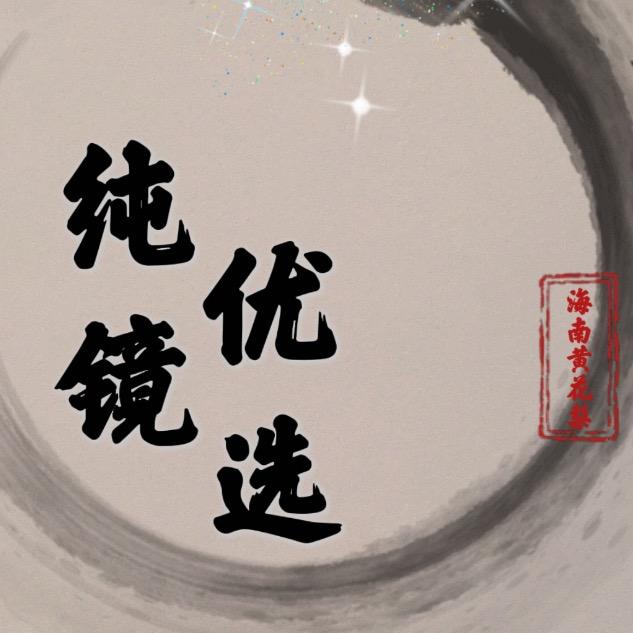 纯镜
优选
海南黄花梨